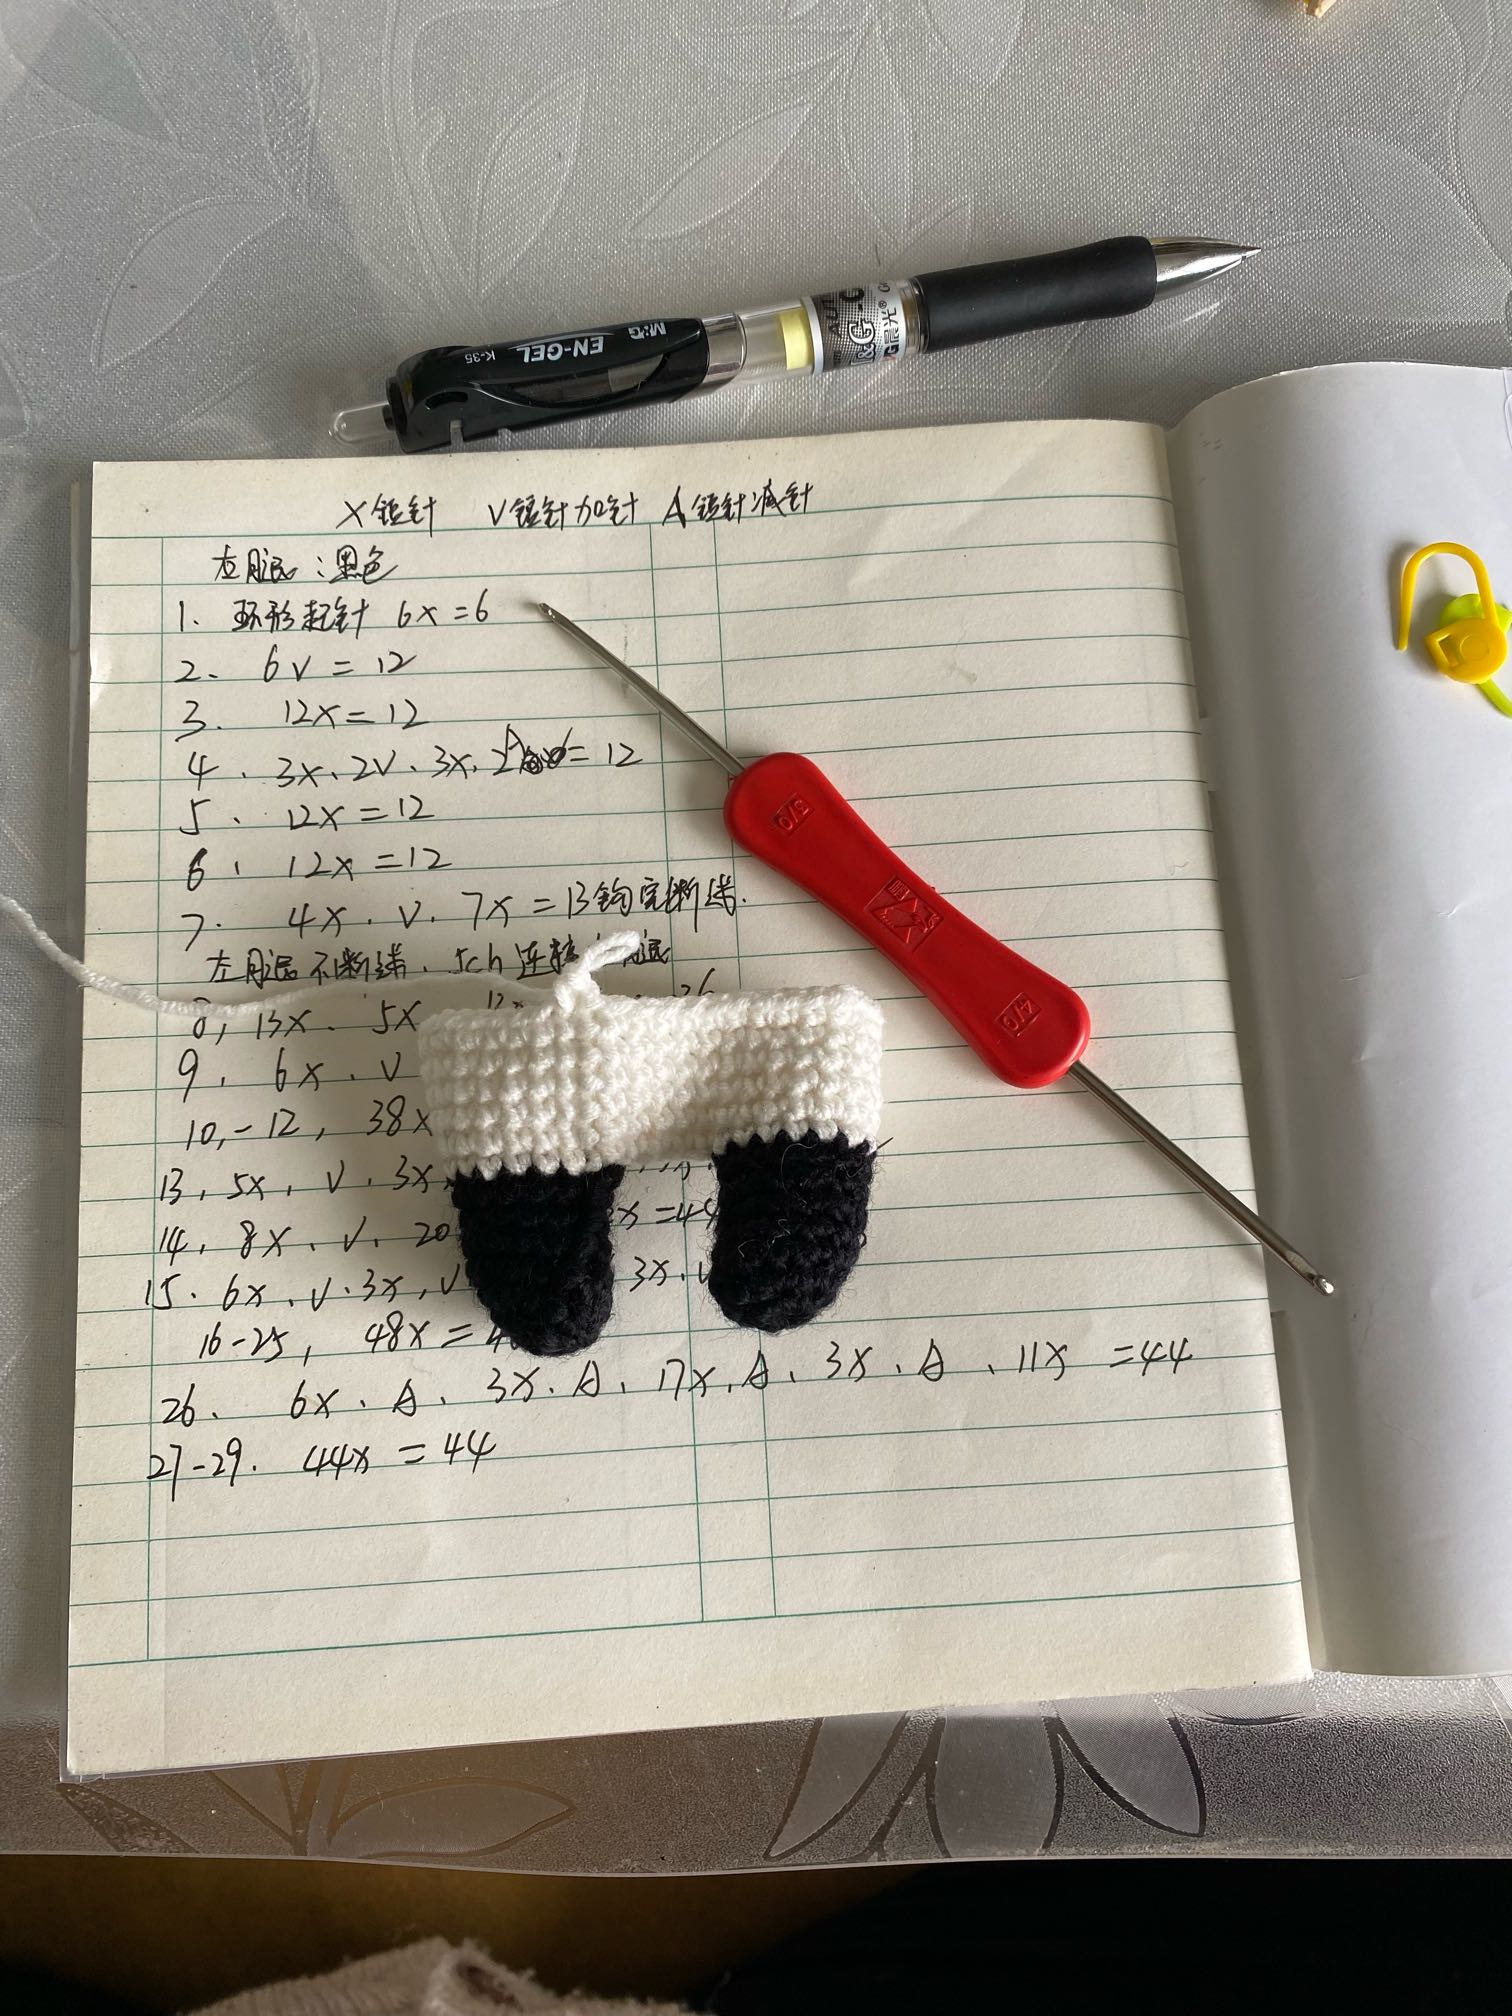 M&G
EN-GEL
K-35
晨光®
X 短针 V 短针加针 A 短针减针
左腿：黑色
1、环形起针 6X=6
2、6V=12
3、12X=12
4、3X、2V、3X、2A=12
5、12X=12
6、12X=12
7、4X、V、7X=13钩完断线.
左腿不断线、5ch 连接 腿
8, 13X、5X
9、6X、V
10,-12, 38X
13, 5X, V、3X,
14, 8X、V、20 X=44
15、6X、V、3X,V 3X、V
16-25, 48X=
26、6X、A、3X、A、17X、A、3X、A、11X =44
27-29、44X=44
3/0
4/0